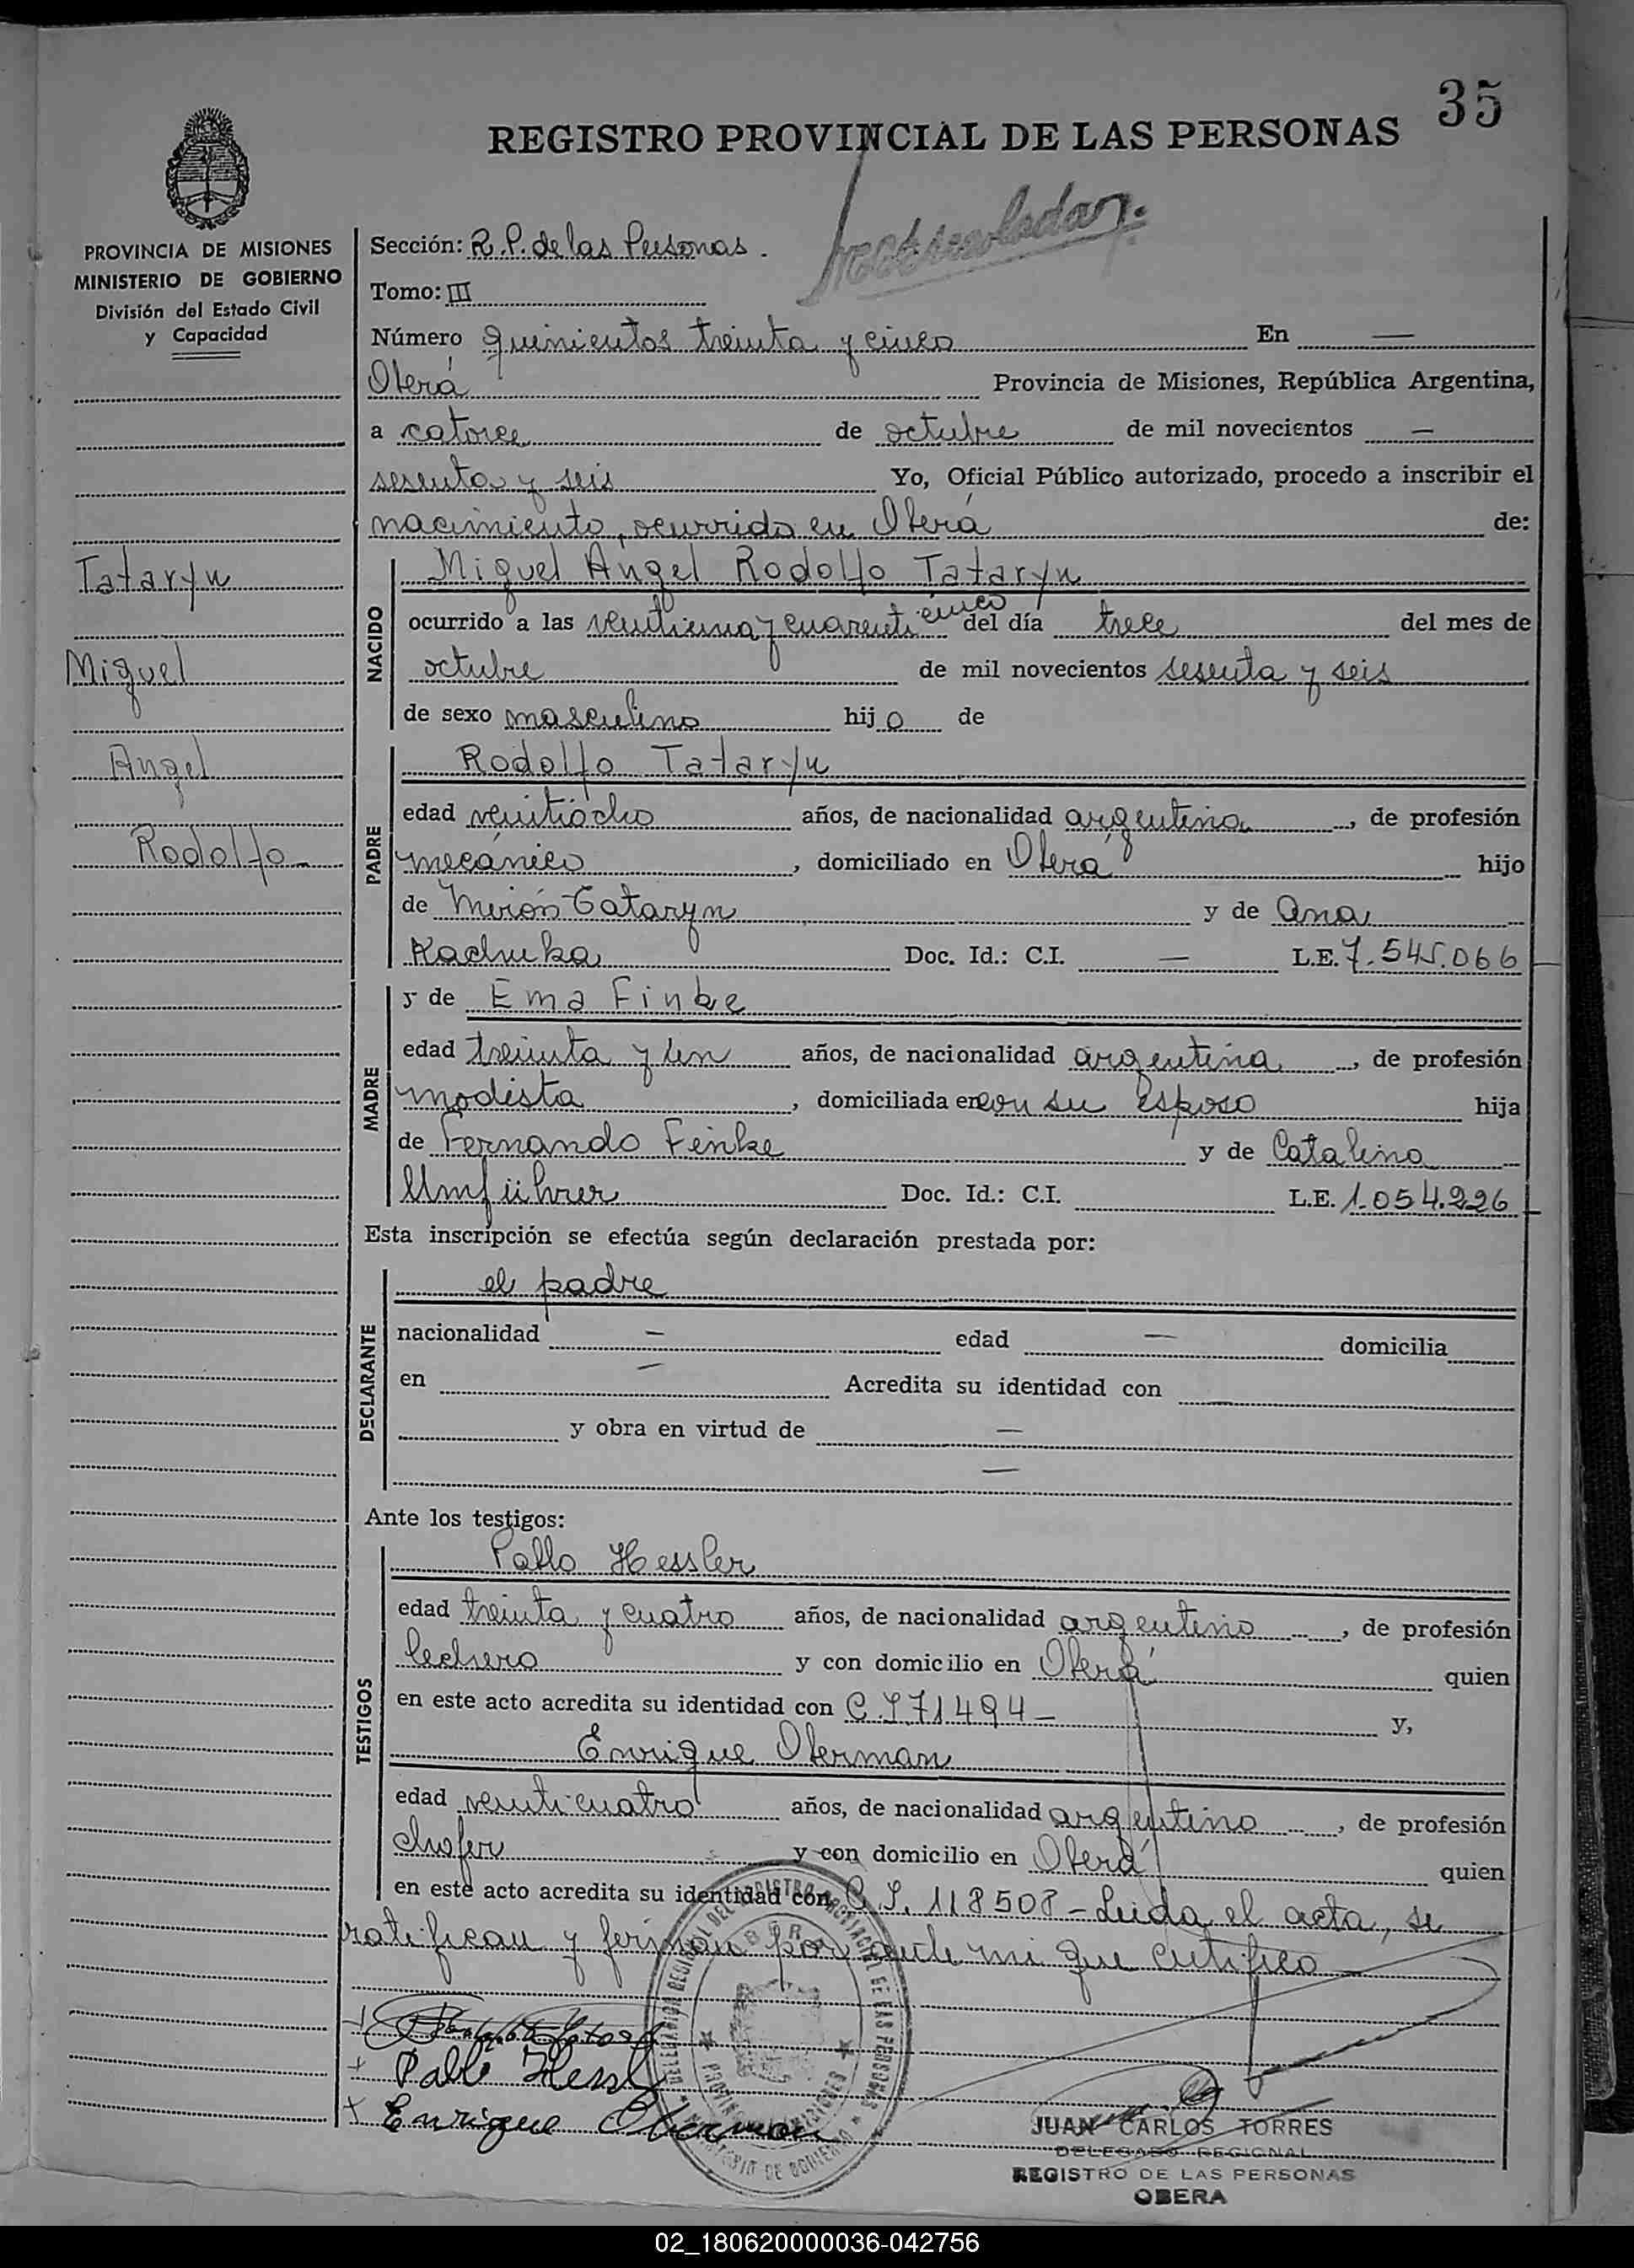 35
REGISTRO PROVINCIAL DE LAS PERSONAS
PROVINCIA DE MISIONES
MINISTERIO DE GOBIERNO
División del Estado Civil
y Capacidad
Tataryn
Miguel
Angel
Rodolfo
Sección: R.P. de las Personas.
Tomo: III
Número quinientos treinta y cinco En —
Oberá Provincia de Misiones, República Argentina,
a catorce de octubre de mil novecientos —
sesenta y seis Yo, Oficial Público autorizado, procedo a inscribir el
nacimiento, ocurrido en Oberá de:
NACIDO
Miguel Angel Rodolfo Tataryn
ocurrido a las veintiuna y cuarenti cinco del día trece del mes de
octubre de mil novecientos sesenta y seis
de sexo masculino hijo de
PADRE
Rodolfo Tataryn
edad veintiocho años, de nacionalidad argentina, de profesión
mecánico, domiciliado en Oberá hijo
de Mirón Tataryn y de Ana
Kachuka Doc. Id.: C.I. — L.E. 7.545.066
MADRE
y de Ema Finke
edad treinta y un años, de nacionalidad argentina, de profesión
modista, domiciliada en con su esposo hija
de Fernando Finke y de Catalina
Umführer Doc. Id.: C.I. L.E. 1.054.226
Esta inscripción se efectúa según declaración prestada por:
DECLARANTE
el padre
nacionalidad — edad — domicilia
en — Acredita su identidad con —
y obra en virtud de —
—
Ante los testigos:
TESTIGOS
Pablo Hessler
edad treinta y cuatro años, de nacionalidad argentino, de profesión
lechero y con domicilio en Oberá quien
en este acto acredita su identidad con C.I. 71494— y,
Enrique Oberman
edad veinticuatro años, de nacionalidad argentino, de profesión
chofer y con domicilio en Oberá quien
en este acto acredita su identidad con C.I. 118508 – Leida el acta, se
ratifican y firman por ante mi que certifico —
Pablo Hessl
Enrique Oberman
JUAN CARLOS TORRES
DELEGADO REGIONAL
REGISTRO DE LAS PERSONAS
OBERA
02_180620000036-042756